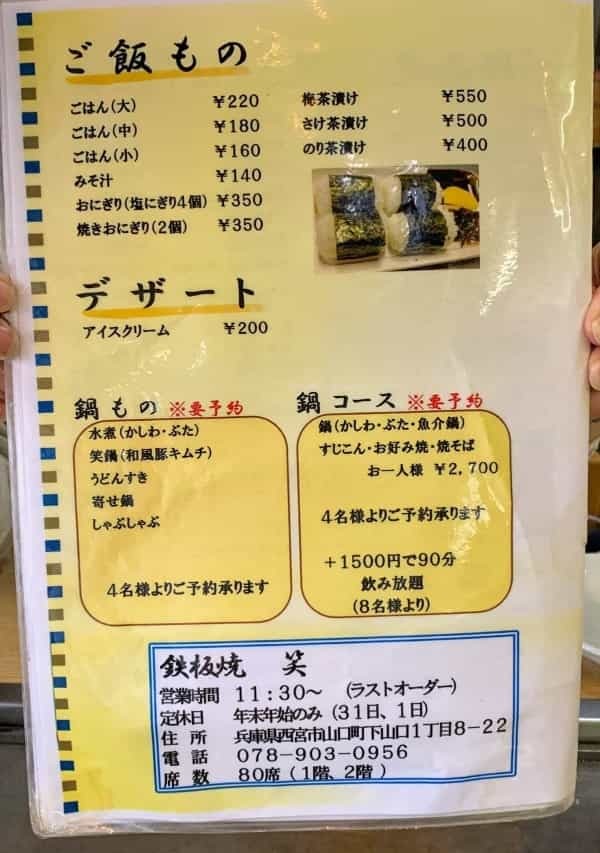 ご飯もの
ごはん(大) ￥220
ごはん(中) ￥180
ごはん(小) ￥160
みそ汁 ￥140
おにぎり(塩にぎり4個) ￥350
焼きおにぎり(2個) ￥350
梅茶漬け ￥550
さけ茶漬け ￥500
のり茶漬け ￥400
デザート
アイスクリーム ￥200
鍋もの ※要予約
水煮(かしわ・ぶた)
笑鍋(和風豚キムチ)
うどんすき
寄せ鍋
しゃぶしゃぶ
4名様よりご予約承ります
鍋コース ※要予約
鍋(かしわ・ぶた・魚介鍋)
すじこん・お好み焼・焼そば
お一人様 ￥2,700
4名様よりご予約承ります
＋1500円で90分
飲み放題
(8名様より)
鉄板焼 笑
営業時間 11:30～ (ラストオーダー)
定休日 年末年始のみ(31日、1日)
住所 兵庫県西宮市山口町下山口1丁目8－22
電話 078－903－0956
席数 80席(1階、2階)